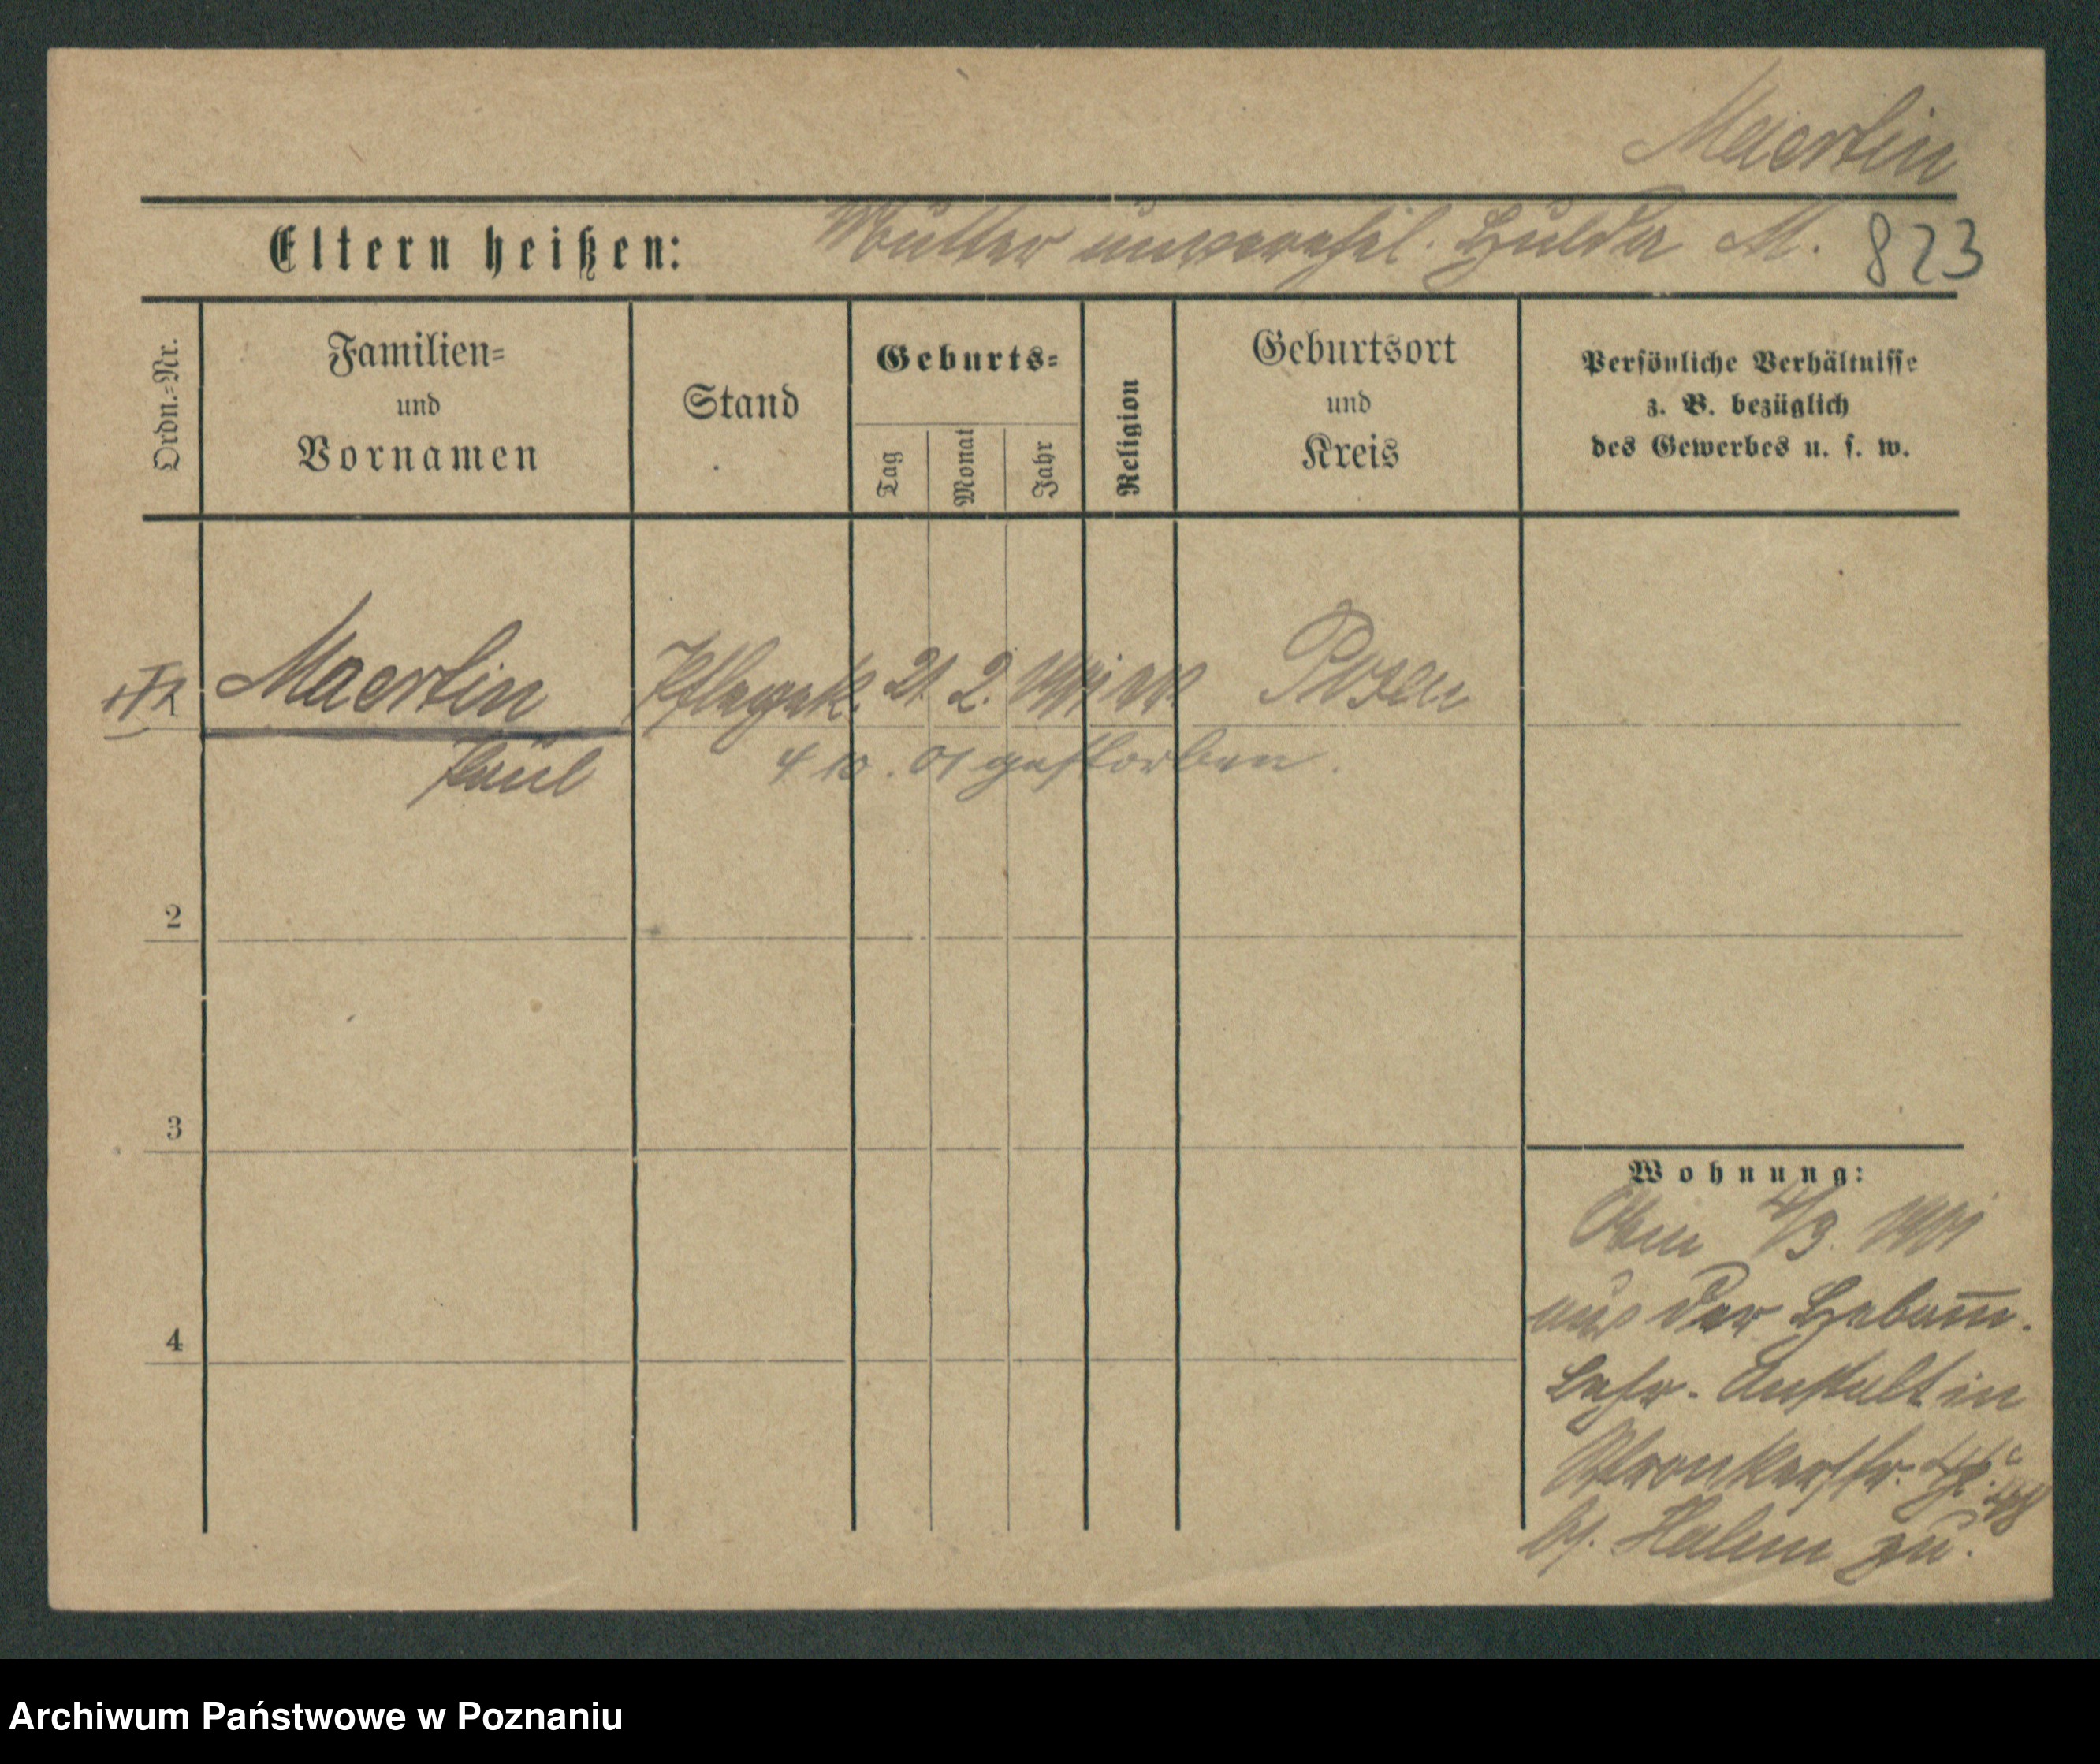 Maertin
Eltern heißen: Mutter unverehel. Hulda M. 823
Ordn.-Nr.
Familien-
und
Vornamen
Stand
Geburts-
Tag
Monat
Jahr
Religion
Geburtsort
und
Kreis
Persönliche Verhältnisse
z. B. bezüglich
des Gewerbes u. s. w.
Maertin Pflegek. 21. 2. Posen
Paul
4 10. 01 gestorben.
2
3
4
Wohnung:
Am 4/3. 1901
aus der Hebam̅.
Lehr-Anstalt in
Wronkerstr.
bj. Halm zu.